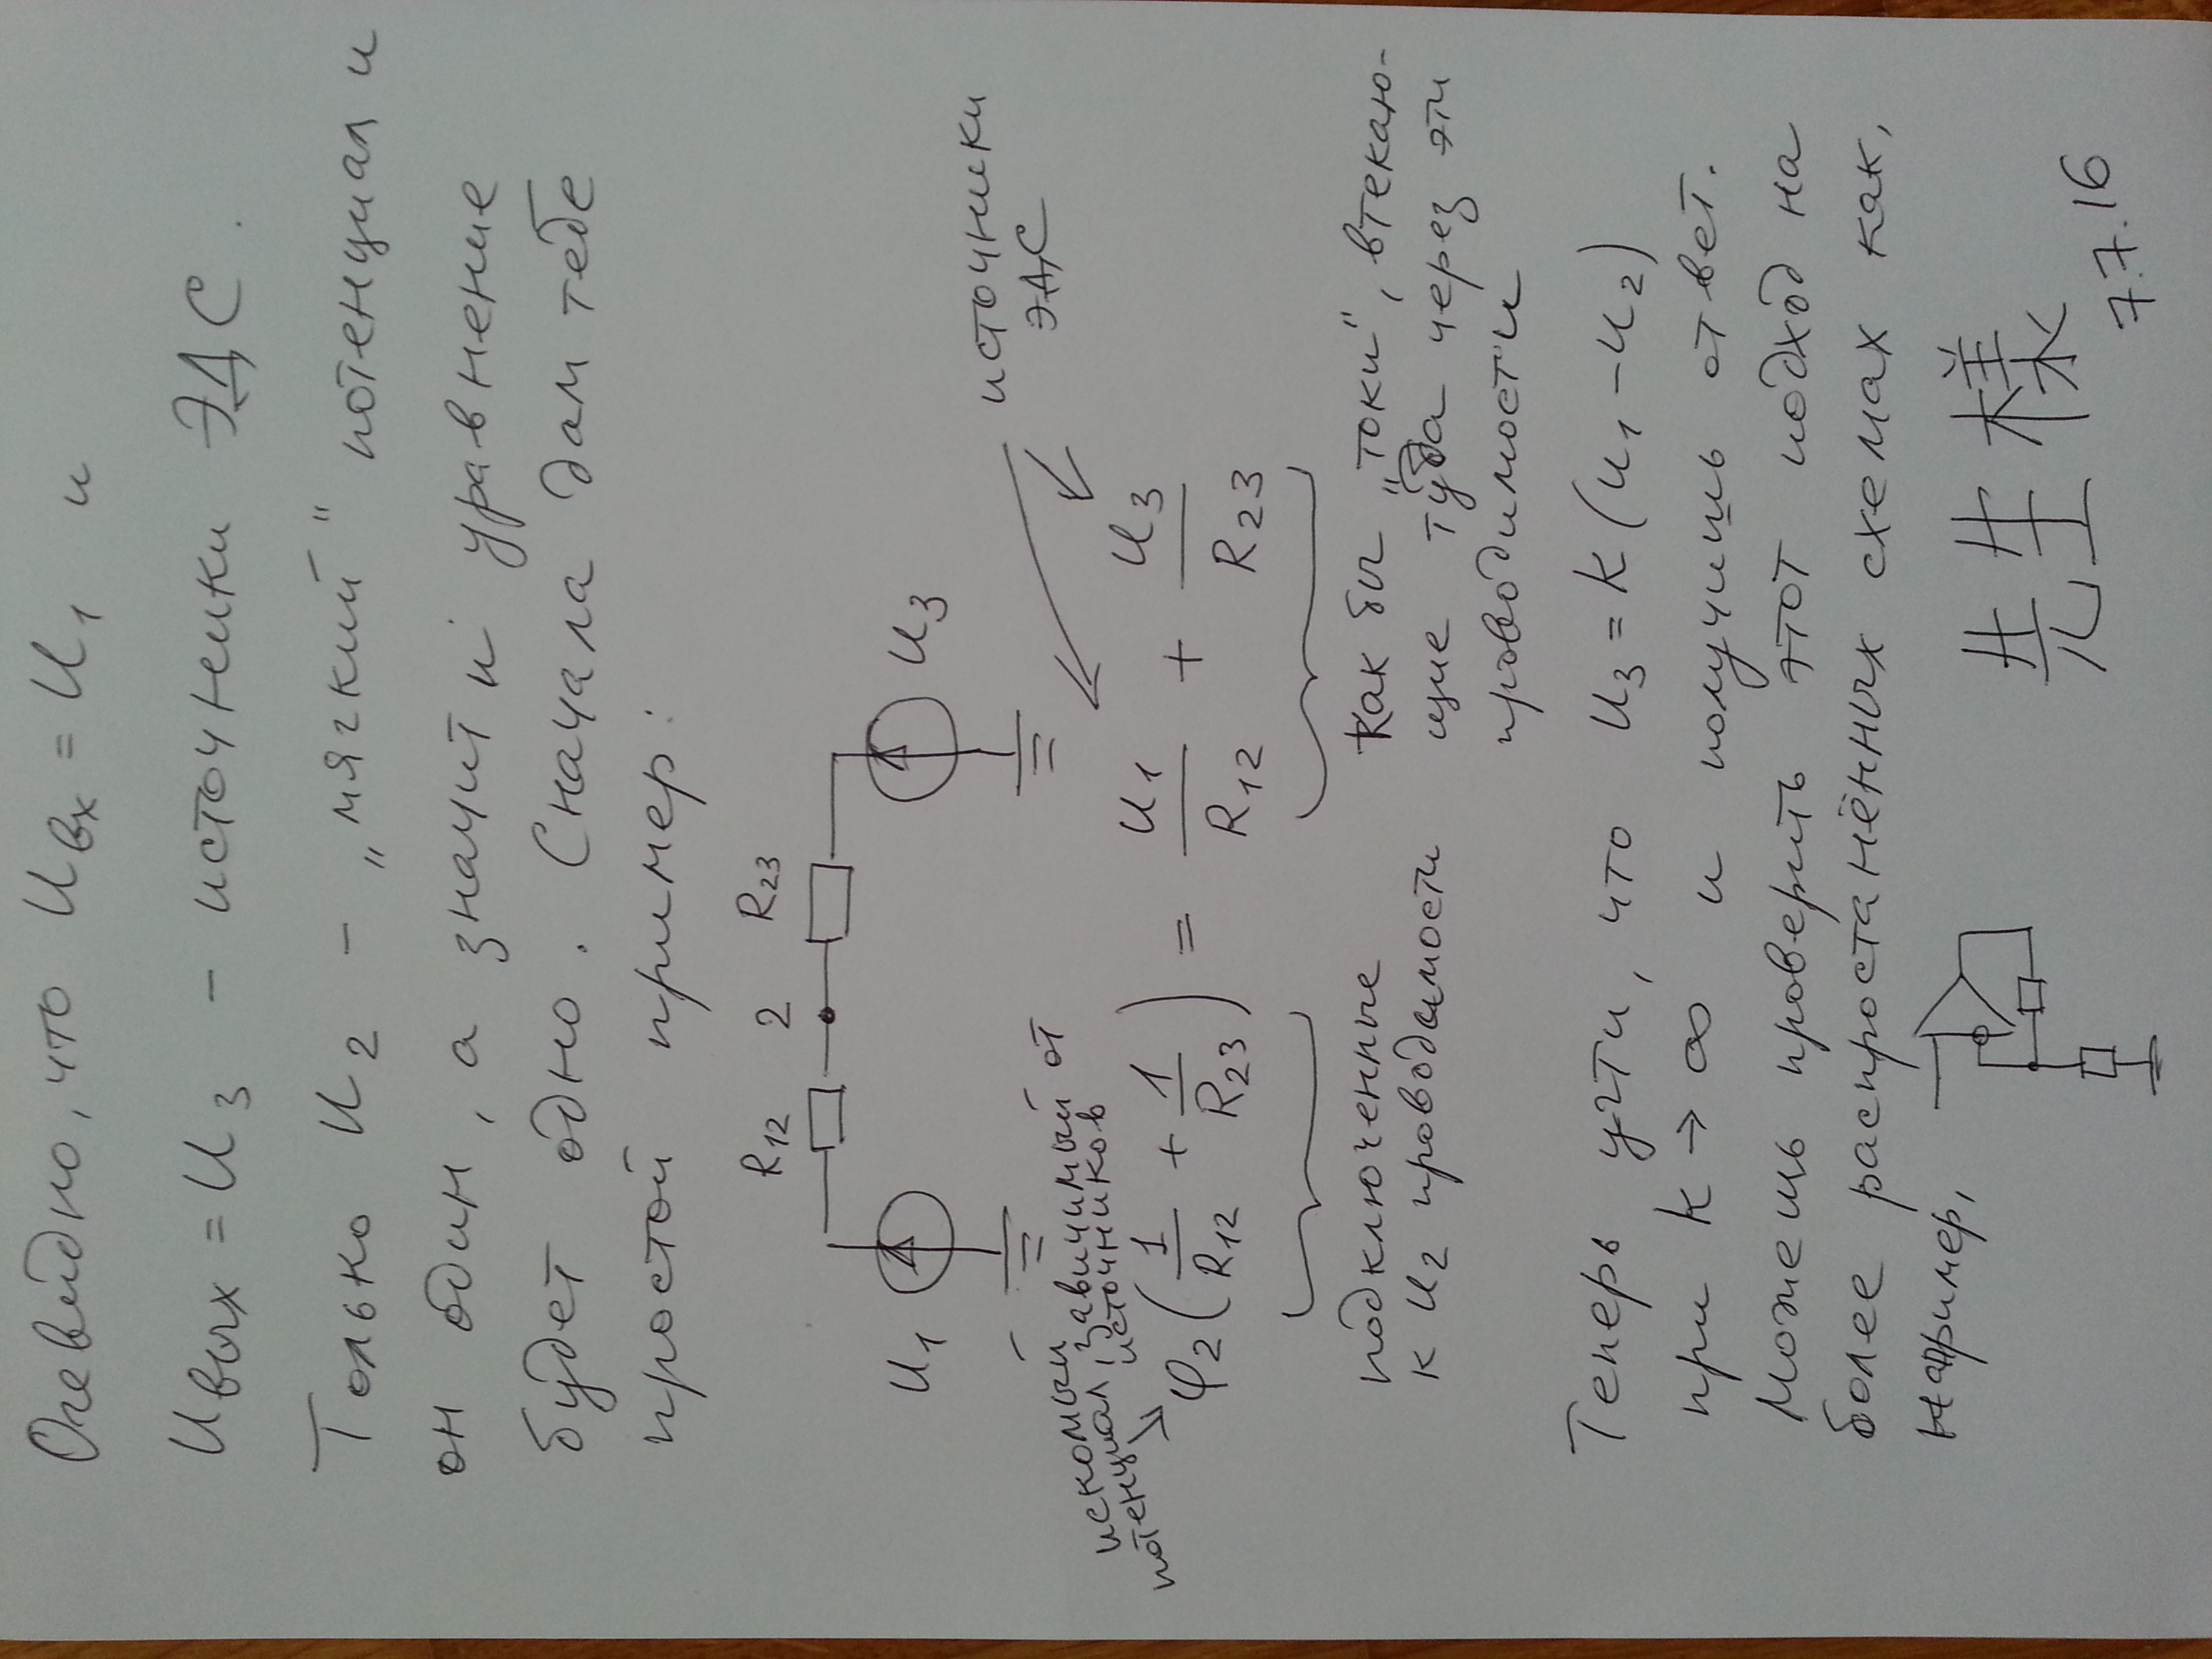 Очевидно, что Uвх = U1 и
Uвых = U3 – источники ЭДС.
Только U2 – „мягкий" потенциал и
он один, а значит и уравнение
будет одно. Сначала дам тебе
простой пример:
R12 2 R23
U1 U3
источники
ЭДС
искомый
потенциал, зависимый от
источников
φ2 (1/R12 + 1/R23) = U1/R12 + U3/R23
подключенные
к U2 проводимости
Как бы „токи", втекаю-
щие туда через эти
проводимости
Теперь учти, что U3 = k(U1 – U2)
при k → ∞ и получишь ответ.
Можешь проверить этот подход на
более распространённых схемах как,
например,
先生様
7.7.16